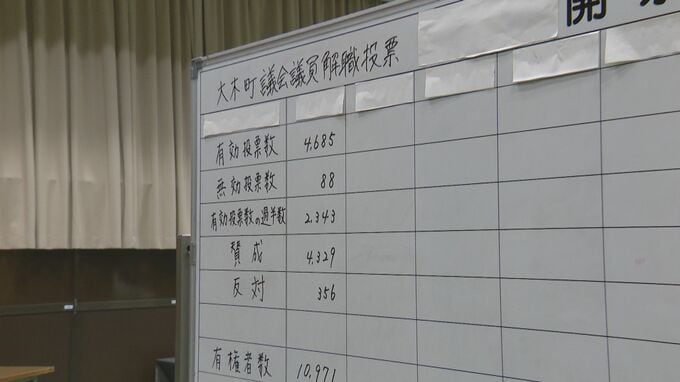 開
大木町議会議員解職投票
有効投票数 4,685
無効投票数 88
有効投票数の過半数 2,343
賛成 4,329
反対 356
有権者数 10,971